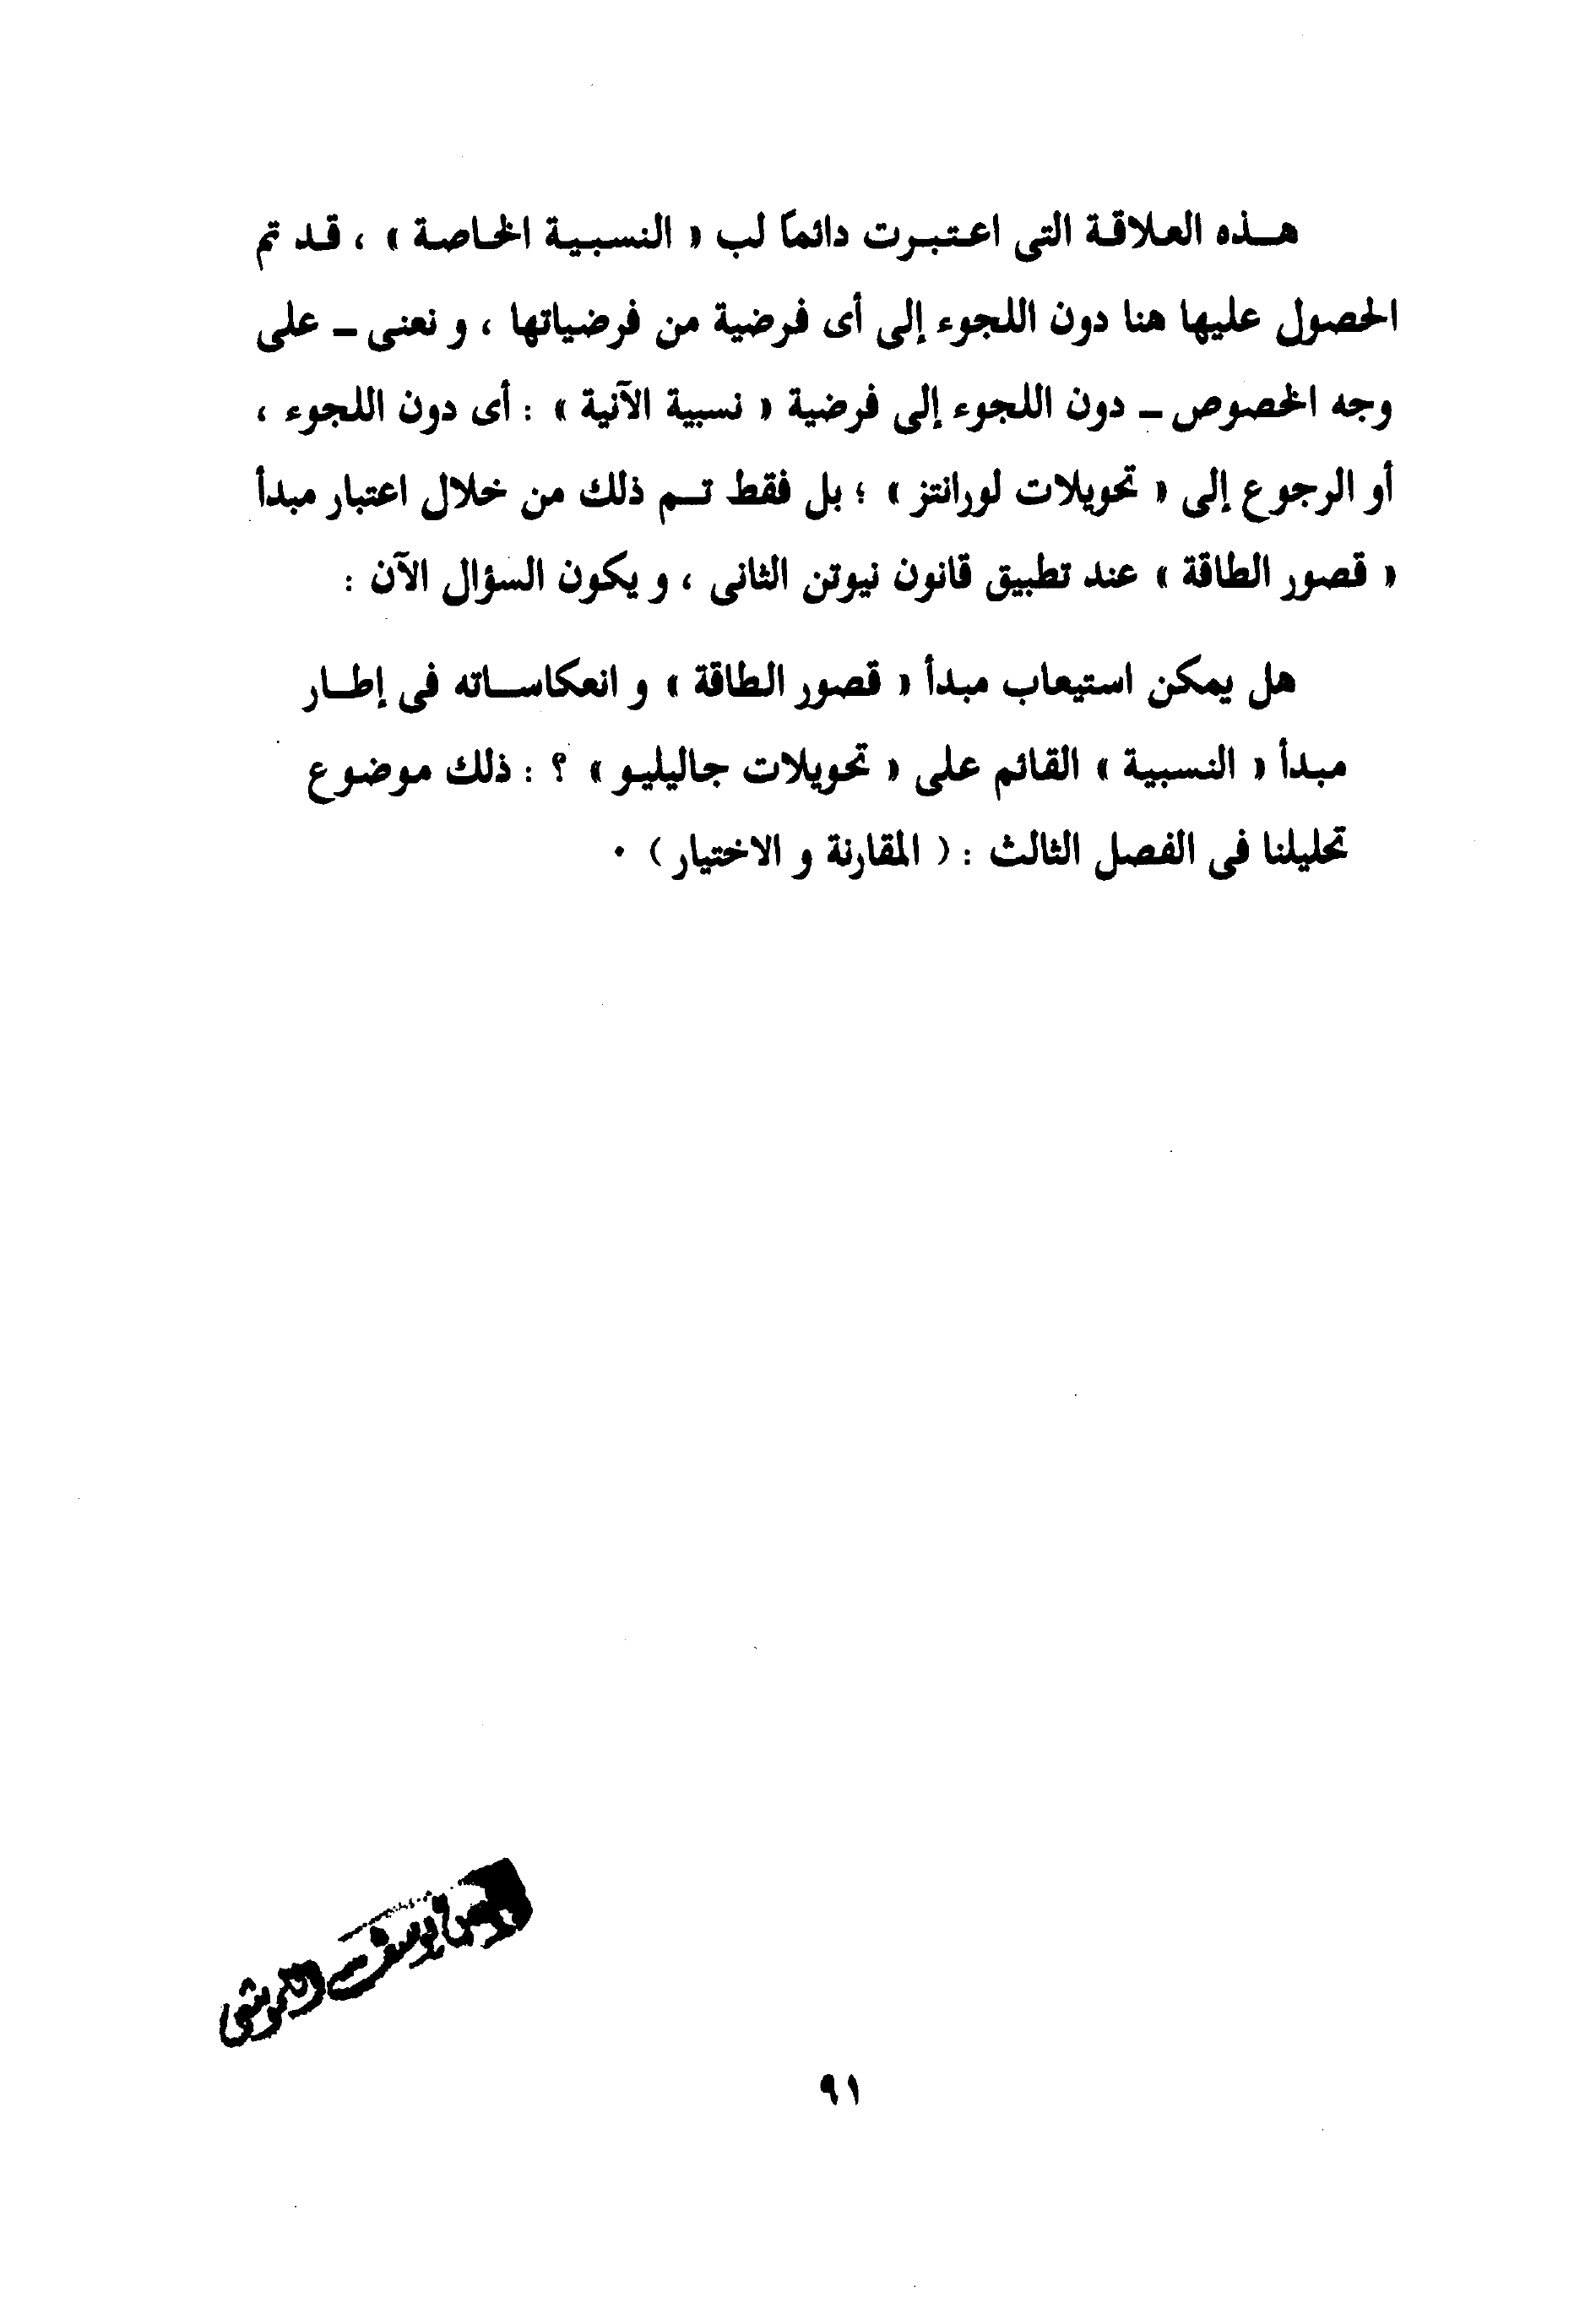 هذه العلاقة التى اعتبرت دائماً لب « النسبية الخاصة » ، قد تم
الحصول عليها هنا دون اللجوء إلى أى فرضية من فرضياتها ، و نعنى – على
وجه الخصوص – دون اللجوء إلى فرضية « نسبية الآنية » : أى دون اللجوء ،
أو الرجوع إلى « تحويلات لورانتز » ؛ بل فقط تم ذلك من خلال اعتبار مبدأ
« قصور الطاقة » عند تطبيق قانون نيوتن الثانى ، و يكون السؤال الآن :
هل يمكن استيعاب مبدأ « قصور الطاقة » و انعكاساته فى إطار
مبدأ « النسبية » القائم على « تحويلات جاليليو » ؟ : ذلك موضوع
تحليلنا فى الفصل الثالث : ( المقارنة و الاختيار ) ٠
٩١